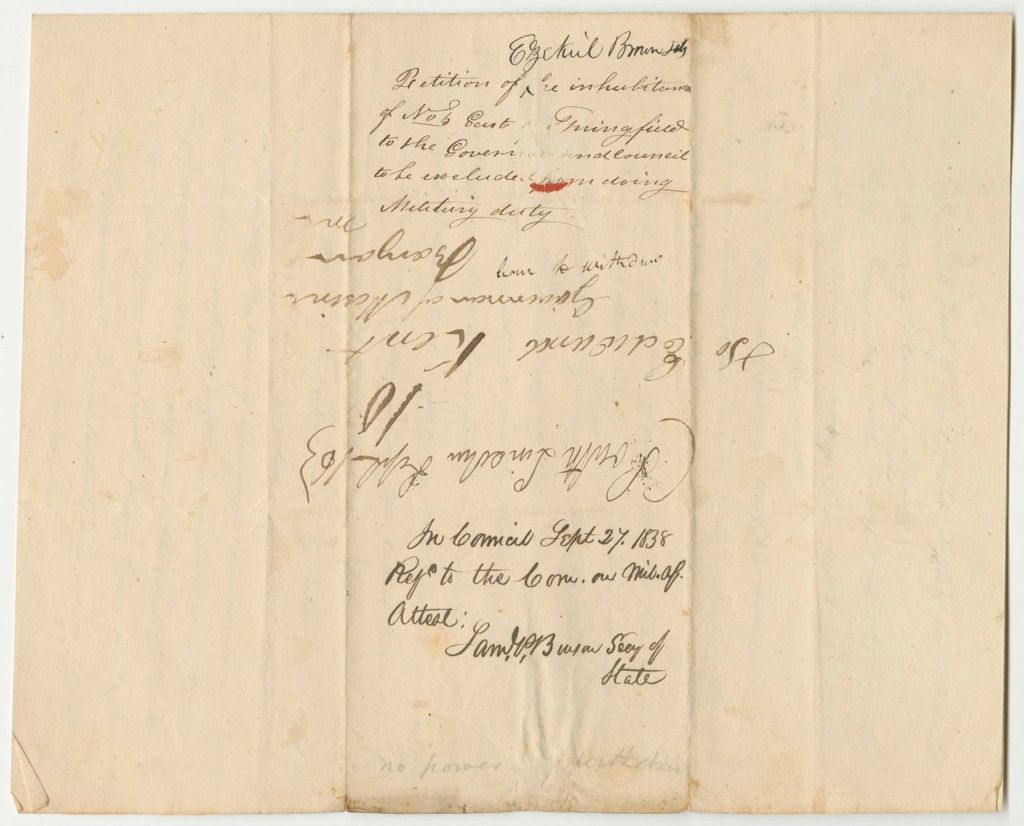 Ezekiel Brown &als
Petition of the inhabitants
of No 5 East Springfield
to the Governor and Council
to be excluded from doing
Military duty
leave to withdraw
Me
Bangor
Governor of Maine
To Edward Kent
10
South Lincoln Sept 16
In Council Sept 27. 1838
Refd to the Com. on Mil. Aff.
Attest:
Saml P. Benson Secy of
State
no power withdraw